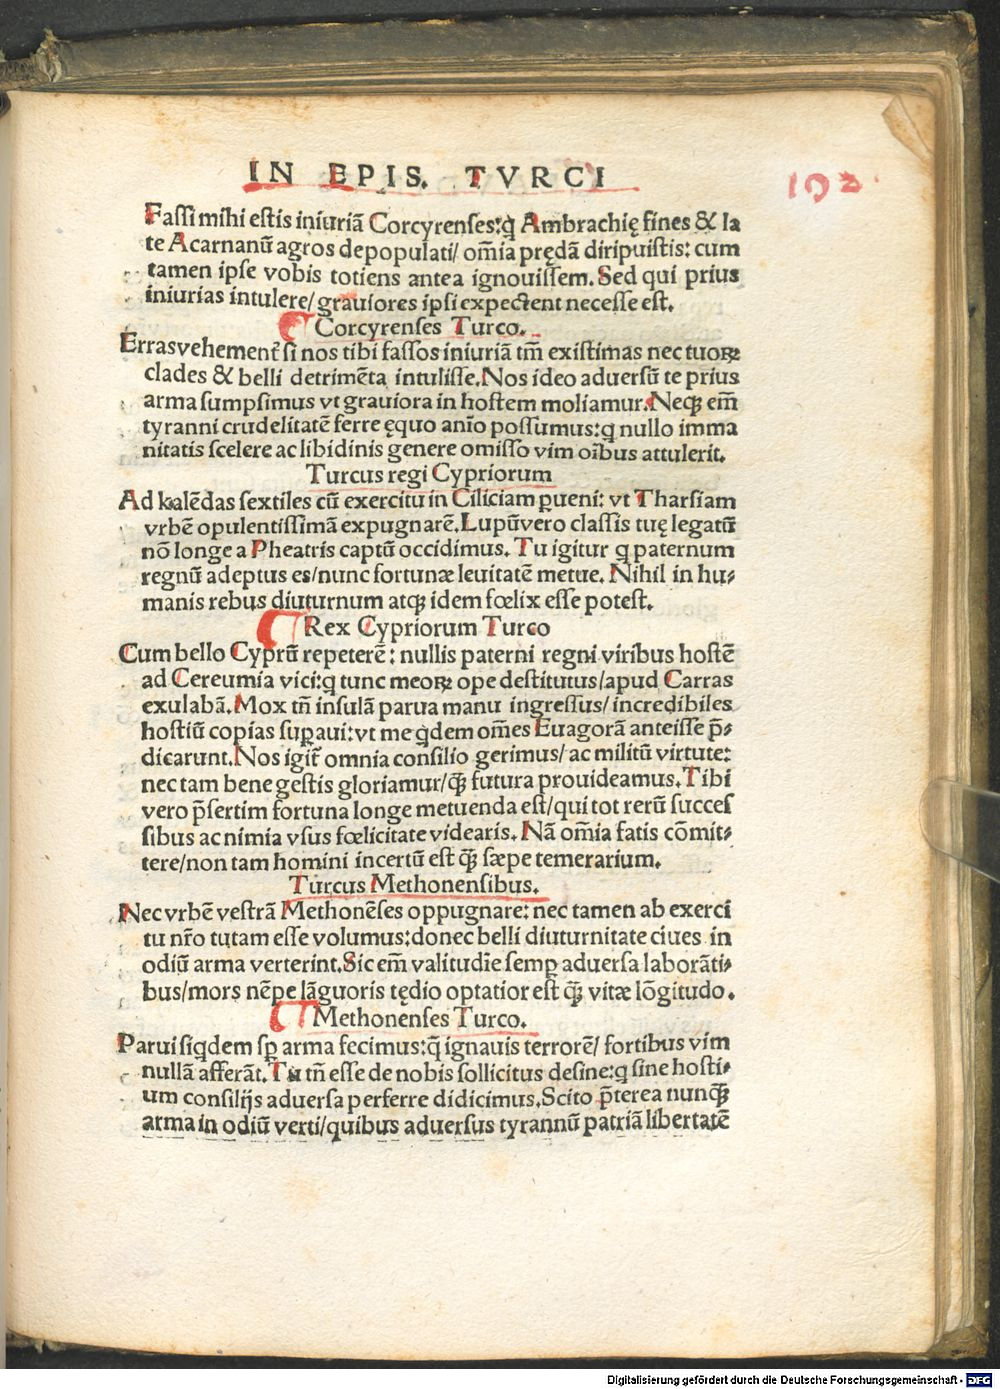 IN EPIS. TVRCI
192
Fassi mihi estis iniuriā Corcyrenses: ꝙ Ambrachię fines & la
te Acarnanū agros depopulati/ om̄ia prędā diripuistis: cum
tamen ipse vobis totiens antea ignouissem. Sed qui prius
iniurias intulere/ grauiores ipsi expectent necesse est.
¶ Corcyrenses Turco.
Erras vehement̄ si nos tibi fassos iniuriā tm̄ existimas nec tuoꝝ
clades & belli detrimēta intulisse. Nos ideo aduersū te prius
arma sumpsimus vt grauiora in hostem moliamur. Neqꝫ em̄
tyranni crudelitatē ferre ęquo anīo possumus: ꝙ nullo imma
nitatis scelere ac libidinis genere omisso vim oībus attulerit.
Turcus regi Cypriorum
Ad kalēdas sextiles cū exercitu in Ciliciam ꝑueni: vt Tharsiam
vrbē opulentissimā expugnarē. Lupū vero classis tuę legatū
nō longe a Pheatris captū occidimus. Tu igitur ꝙ paternum
regnū adeptus es/ nunc fortunæ leuitatē metue. Nihil in hu⸗
manis rebus diuturnum atqꝫ idem fœlix esse potest.
¶ Rex Cypriorum Turco
Cum bello Cyprū repeterē: nullis paterni regni viribus hostē
ad Cereumia vici: ꝙ tunc meoꝝ ope destitutus/ apud Carras
exulabā. Mox tn̄ insulā parua manu ingressus/ incredibiles
hostiū copias suꝑaui: vt me qͥdem om̄es Euagorā anteisse p̄⸗
dicarunt. Nos igit̄ omnia consilio gerimus/ ac militū virtute:
nec tam bene gestis gloriamur/ qꝫ̄ futura prouideamus. Tibi
vero p̄sertim fortuna longe metuenda est/ qui tot rerū succes
sibus ac nimia vsus fœlicitate videaris. Nā om̄ia fatis cōmit⸗
tere/ non tam homini incertū est qꝫ̄ sæpe temerarium.
Turcus Methonensibus.
Nec vrbē vestrā Methonēses oppugnare: nec tamen ab exerci
tu nr̄o tutam esse volumus: donec belli diuturnitate ciues in
odiū arma verterint. Sic em̄ valitudīe semꝑ aduersa laborāti⸗
bus/ mors nēpe lāguoris tędio optatior est qꝫ̄ vitæ lōgitudo.
¶ Methonenses Turco.
Parui siqͥdem sꝑ arma fecimus: q̄ ignauis terrorē/ fortibus vim
nullā afferāt. Tu tn̄ esse de nobis sollicitus desine: ꝙ sine hosti⸗
um consilijs aduersa perferre didicimus. Scito p̄terea nunqꝫ̄
arma in odiū verti/ quibus aduersus tyrannū patriā libertatē
Digitalisierung gefördert durch die Deutsche Forschungsgemeinschaft - DFG